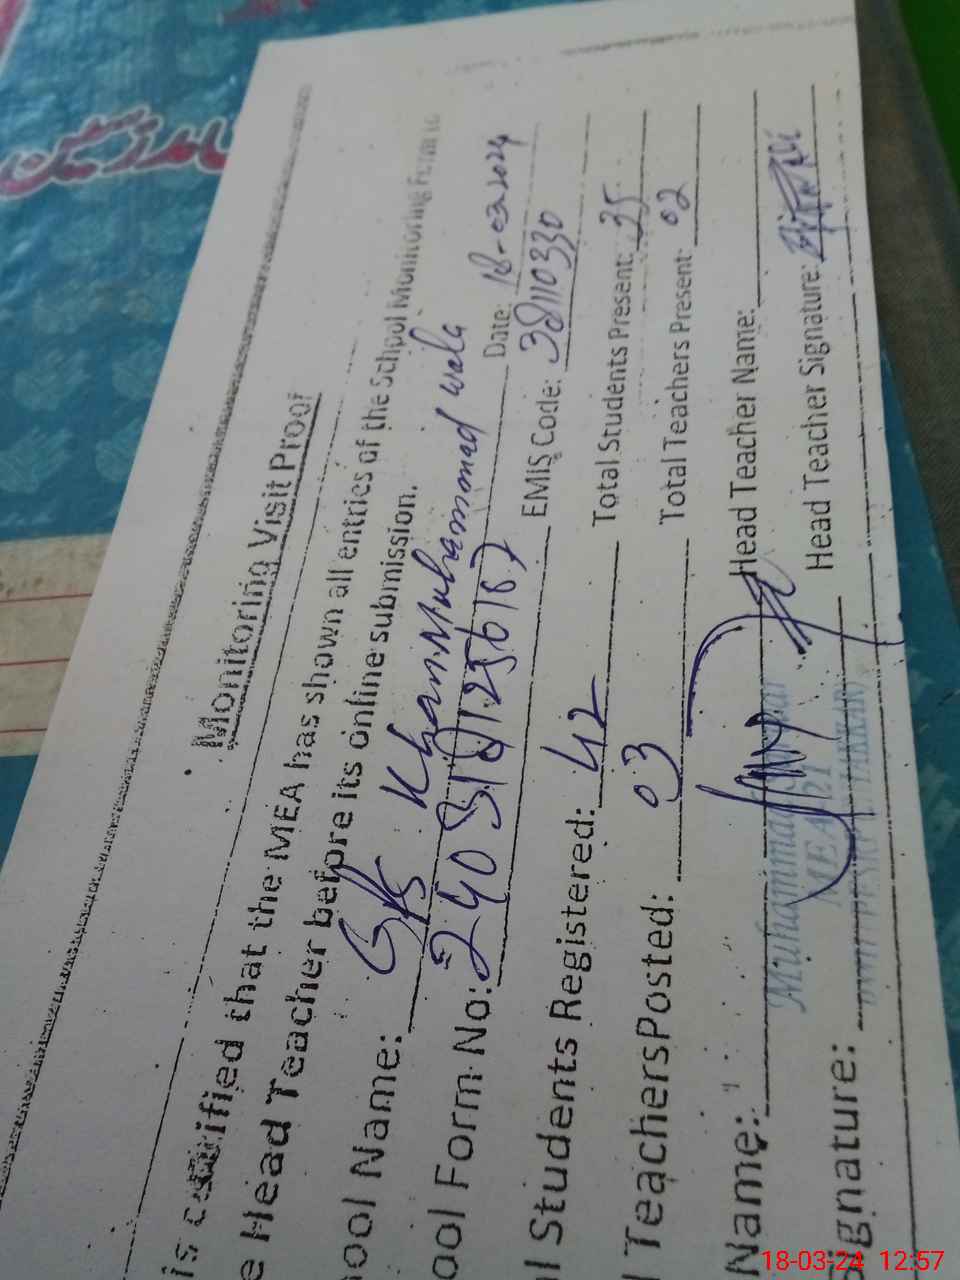 Monitoring Visit Proof
is certified that the MEA has shown all entries of the School Monitoring Form to
e Head Teacher before its online submission.
ool Name: GPS Khan Muhammad wala Date: 18-03-2024
ool Form No: EMIS Code: 38110330
l Students Registered: 42 Total Students Present: 35
l Teachers Posted: 03 Total Teachers Present: 02
Name: Muhammad Head Teacher Name:
Signature: Head Teacher Signature:
MEA 21
18-03-24 12:57